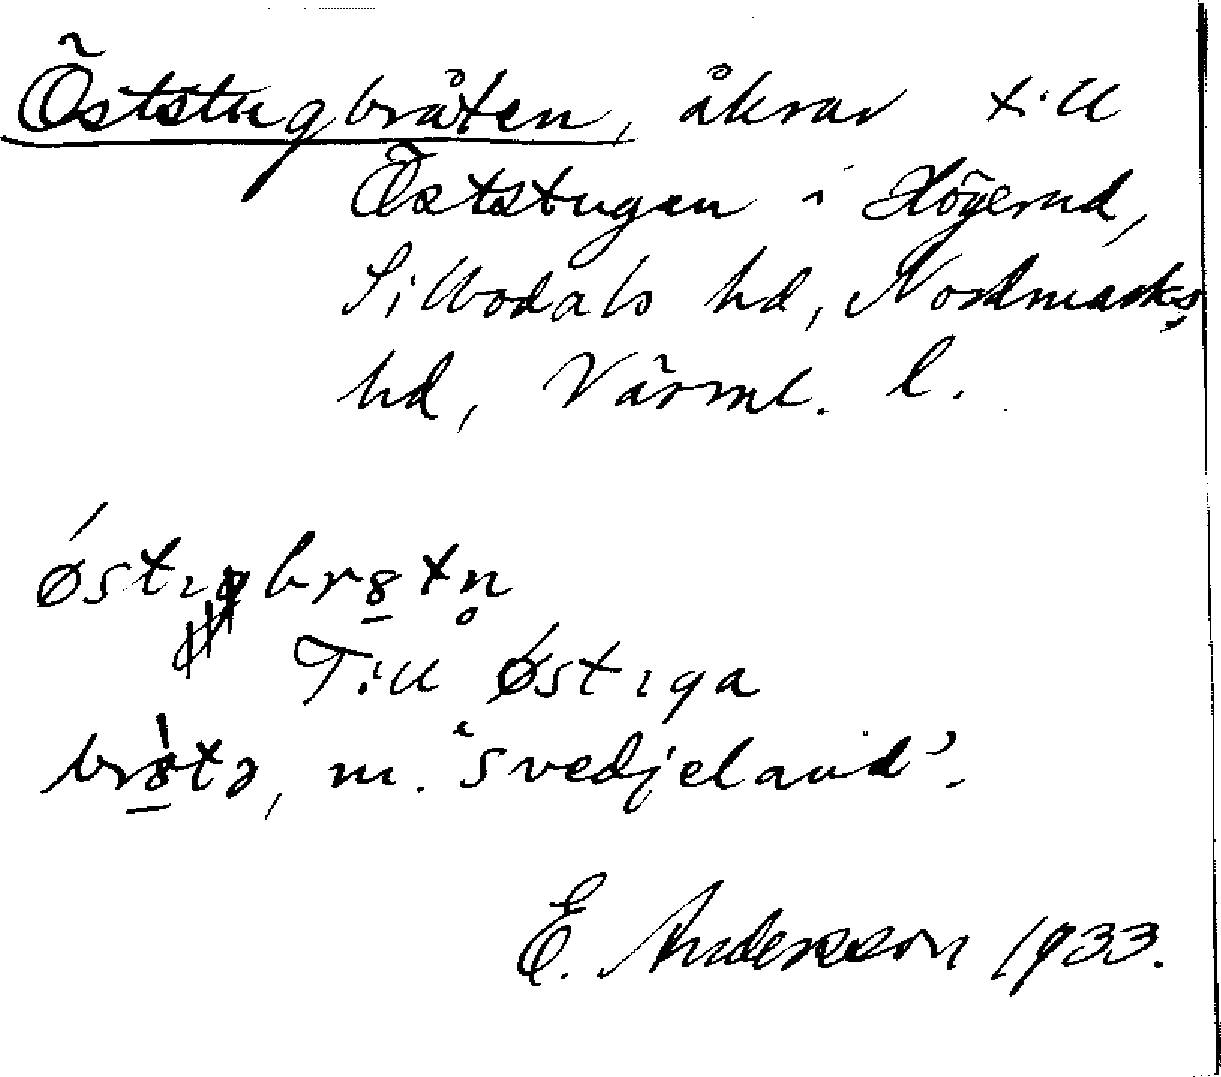 Öststugbråten, åkrar till
Öststugan i Högerud,
Sillbodals hd, Nordmarks
hd, Värml. l.
østıgbr8tn̥
Till østıga
br8tə, m. "svedjeland".
E. Andersson 1933.